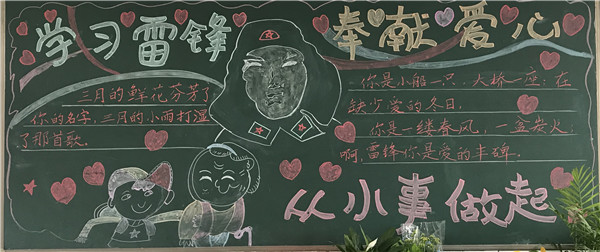 学习雷锋
奉献爱心
三月的鲜花芬芳了
你的名字,三月的小雨打湿
了那首歌。
你是小船一只,大桥一座;在
缺少爱的冬日,
你是一缕春风,一盆炭火;
啊,雷锋你是爱的丰碑。
从小事做起